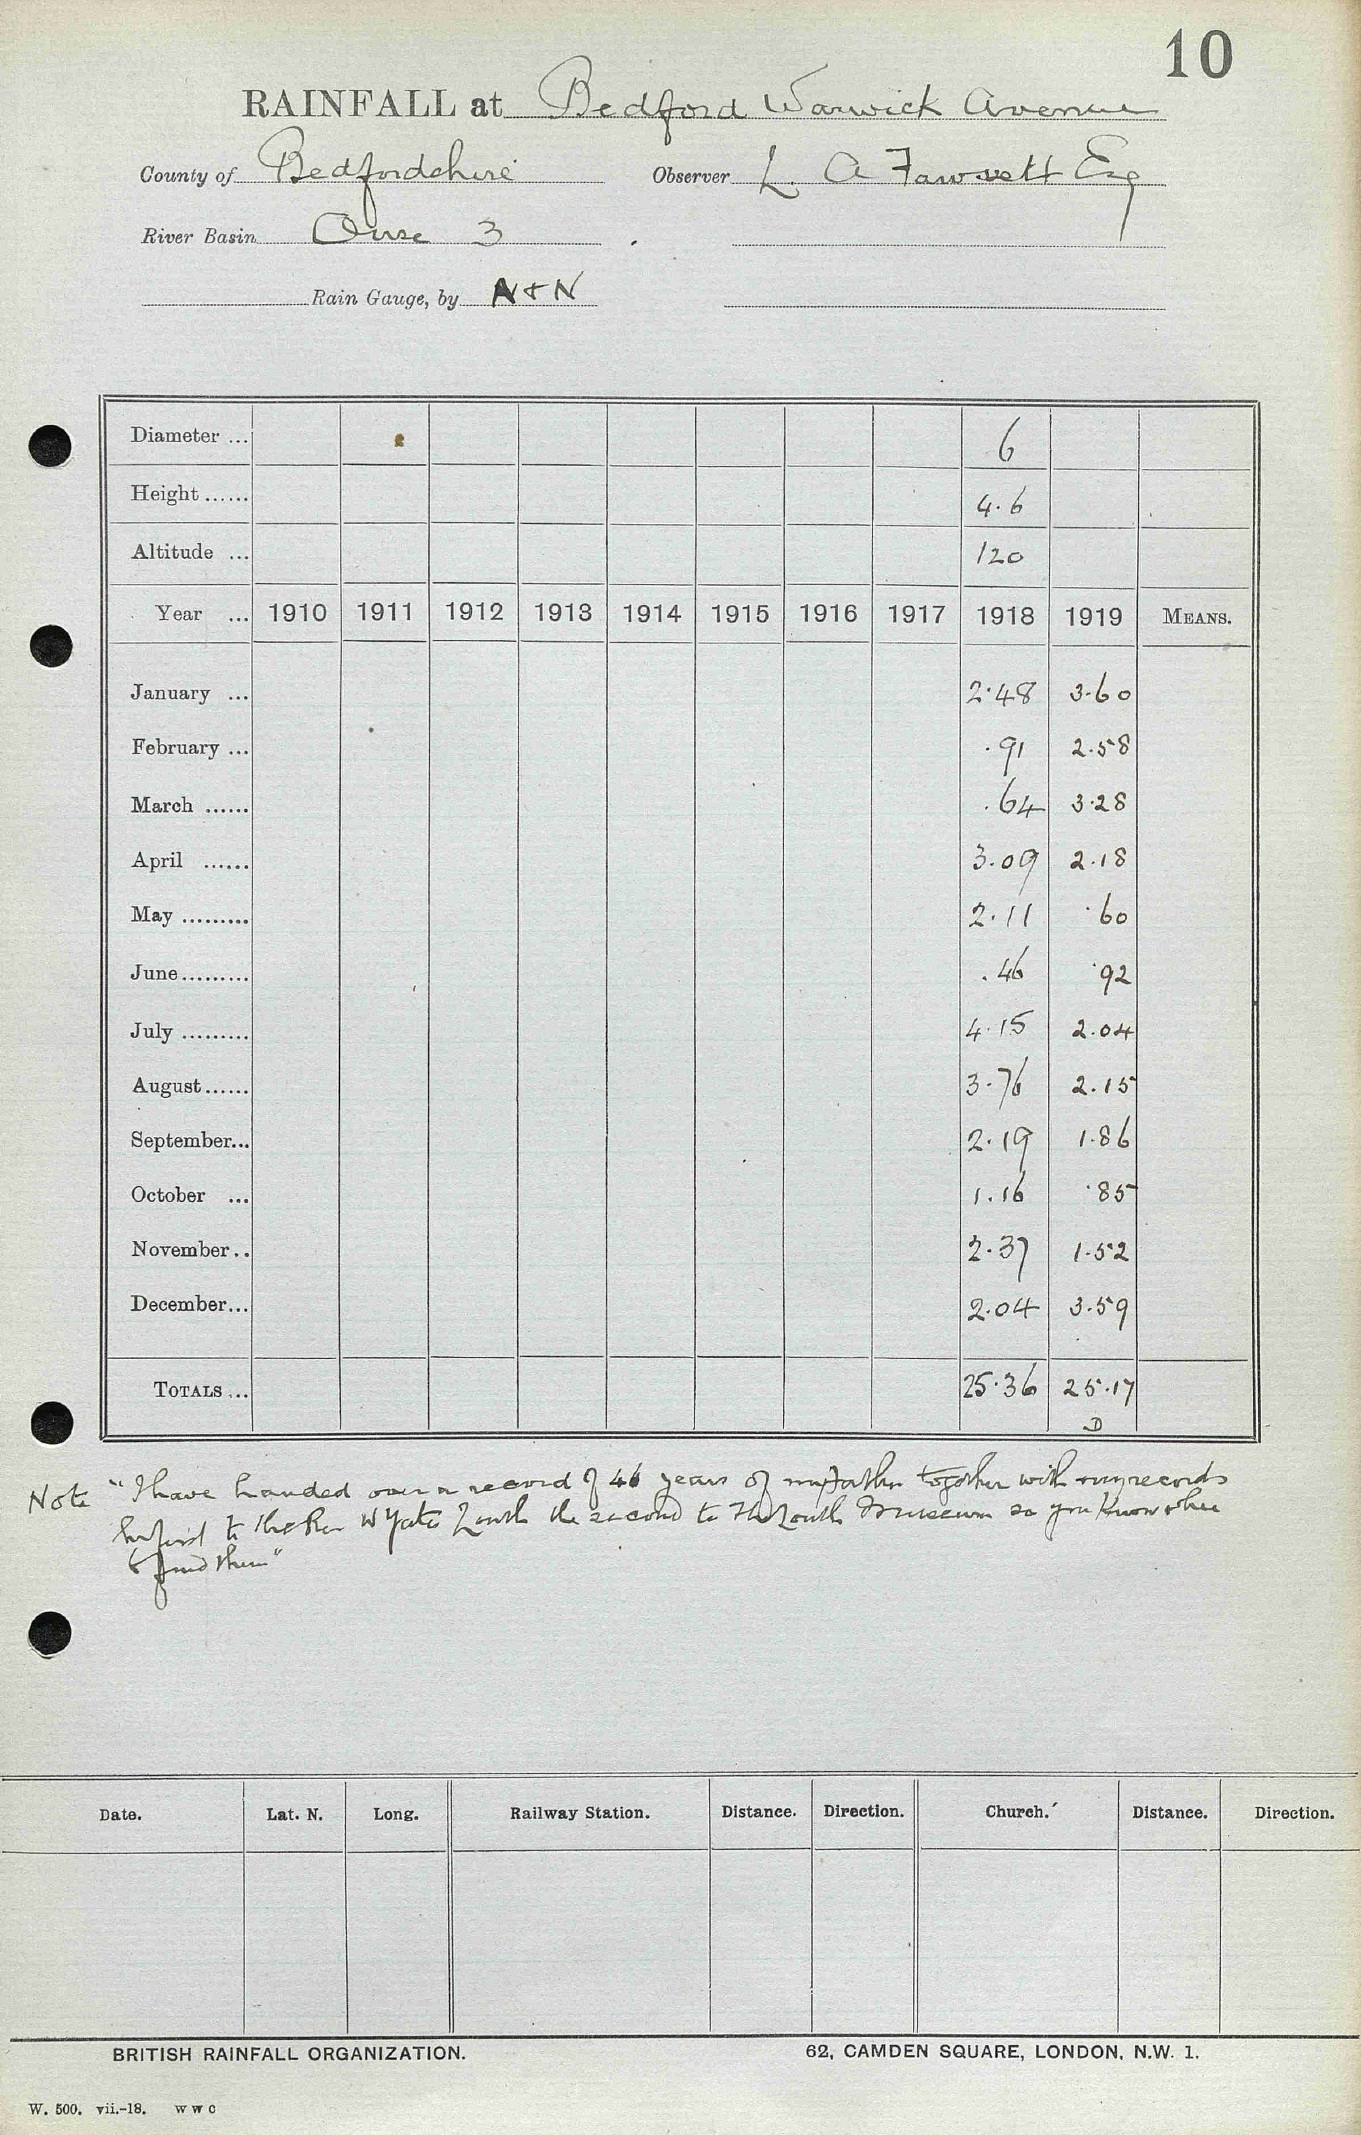 10
RAINFALL at Bedford Warwick Avenue
County of Bedfordshire Observer L. A Fawssett Esq
River Basin Ouse 3
Rain Gauge, by N & N
Diameter ... 6
Height ...... 4.6
Altitude ... 120
Year ... 1910 1911 1912 1913 1914 1915 1916 1917 1918 1919 MEANS.
January ... 2.48 3.60
February ... .91 2.58
March ...... .64 3.28
April ...... 3.09 2.18
May ......... 2.11 .60
June......... .46 .92
July ......... 4.15 2.04
August...... 3.76 2.15
September... 2.19 1.86
October ... 1.16 .85
November.. 2.37 1.52
December... 2.04 3.59
TOTALS ... 25.36 25.17
D
Note "I have handed over a record of 46 years of my father together with my records
to the Rev W Yate Louth the second to the Louth Museum so you know where
to find them"
Date. Lat. N. Long. Railway Station. Distance. Direction. Church. Distance. Direction.
BRITISH RAINFALL ORGANIZATION. 62, CAMDEN SQUARE, LONDON, N.W. 1.
W. 500. vii.-18. W W C